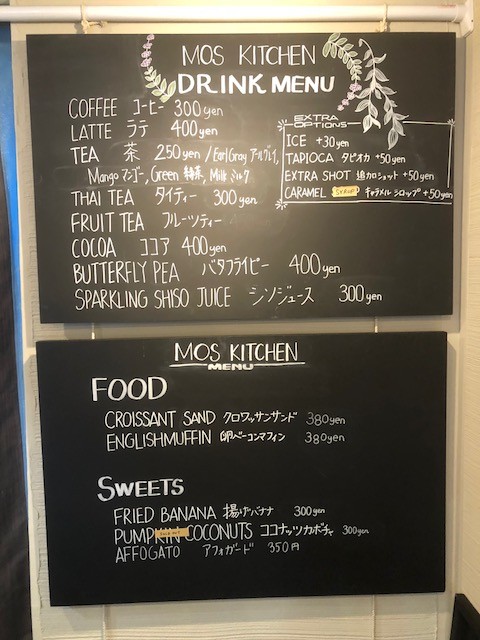 MOS KITCHEN
DRINK MENU
COFFEE コーヒー 300yen
LATTE ラテ 400yen
TEA 茶 250yen / Earl Gray アールグレイ,
Mango マンゴー, Green 緑茶, Milk ミルク
THAI TEA タイティー 300yen
FRUIT TEA フルーツティー
COCOA ココア 400yen
BUTTERFLY PEA バタフライピー 400yen
SPARKLING SHISO JUICE シソジュース 300yen
EXTRA
OPTIONS
ICE +30yen
TAPIOCA タピオカ +50yen
EXTRA SHOT 追加ショット +50yen
CARAMEL SYRUP キャラメルシロップ +50yen
MOS KITCHEN
MENU
FOOD
CROISSANT SAND クロワッサンサンド 380yen
ENGLISHMUFFIN 卵ベーコンマフィン 380yen
SWEETS
FRIED BANANA 揚げバナナ 300yen
PUMPKIN COCONUTS ココナッツカボチャ 300yen
SOLD OUT
AFFOGATO アフォガード 350円